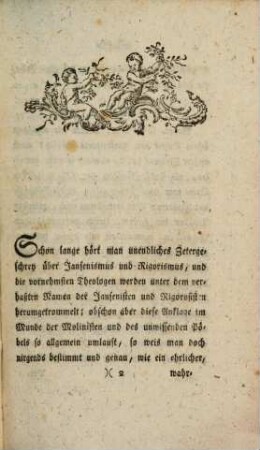 Schon lange hört man unendliches Zeterge-
schrey über Jansenismus und Rigorismus, und
die vornehmsten Theologen werden unter dem ver-
haßten Namen der Jansenisten und Rigoristen
herumgetrommelt; obschon aber diese Anklage im
Munde der Molinisten und des unwissenden Pö-
bels so allgemein umlauft, so weis man doch
nirgends bestimmt und genau, wie ein ehrlicher,
)( 2 wahr-